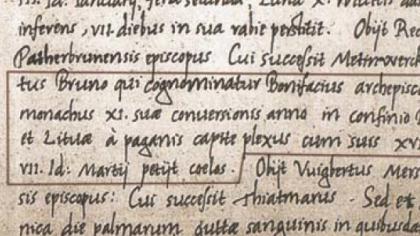 III. Id. Ianuarij, feria secunda, Luna X.
inferens, VII. diebus in sua rabie perstitit. Obijt Re
Patherbrunensis episcopus. Cui successit Meinwerc
tus Bruno qui cognominatur Bonifacius archepisco
monachus XI. suæ conversionis anno in confinio
et Lituæ à paganis capite plexus cum suis XVI
VII. Id: Martij petijt coelos. Obijt Vuigbertus Mers
sis episcopus: Cui successit Thiatmarus. Sed et
nica die palmarum guttæ sanguinis in quibusda